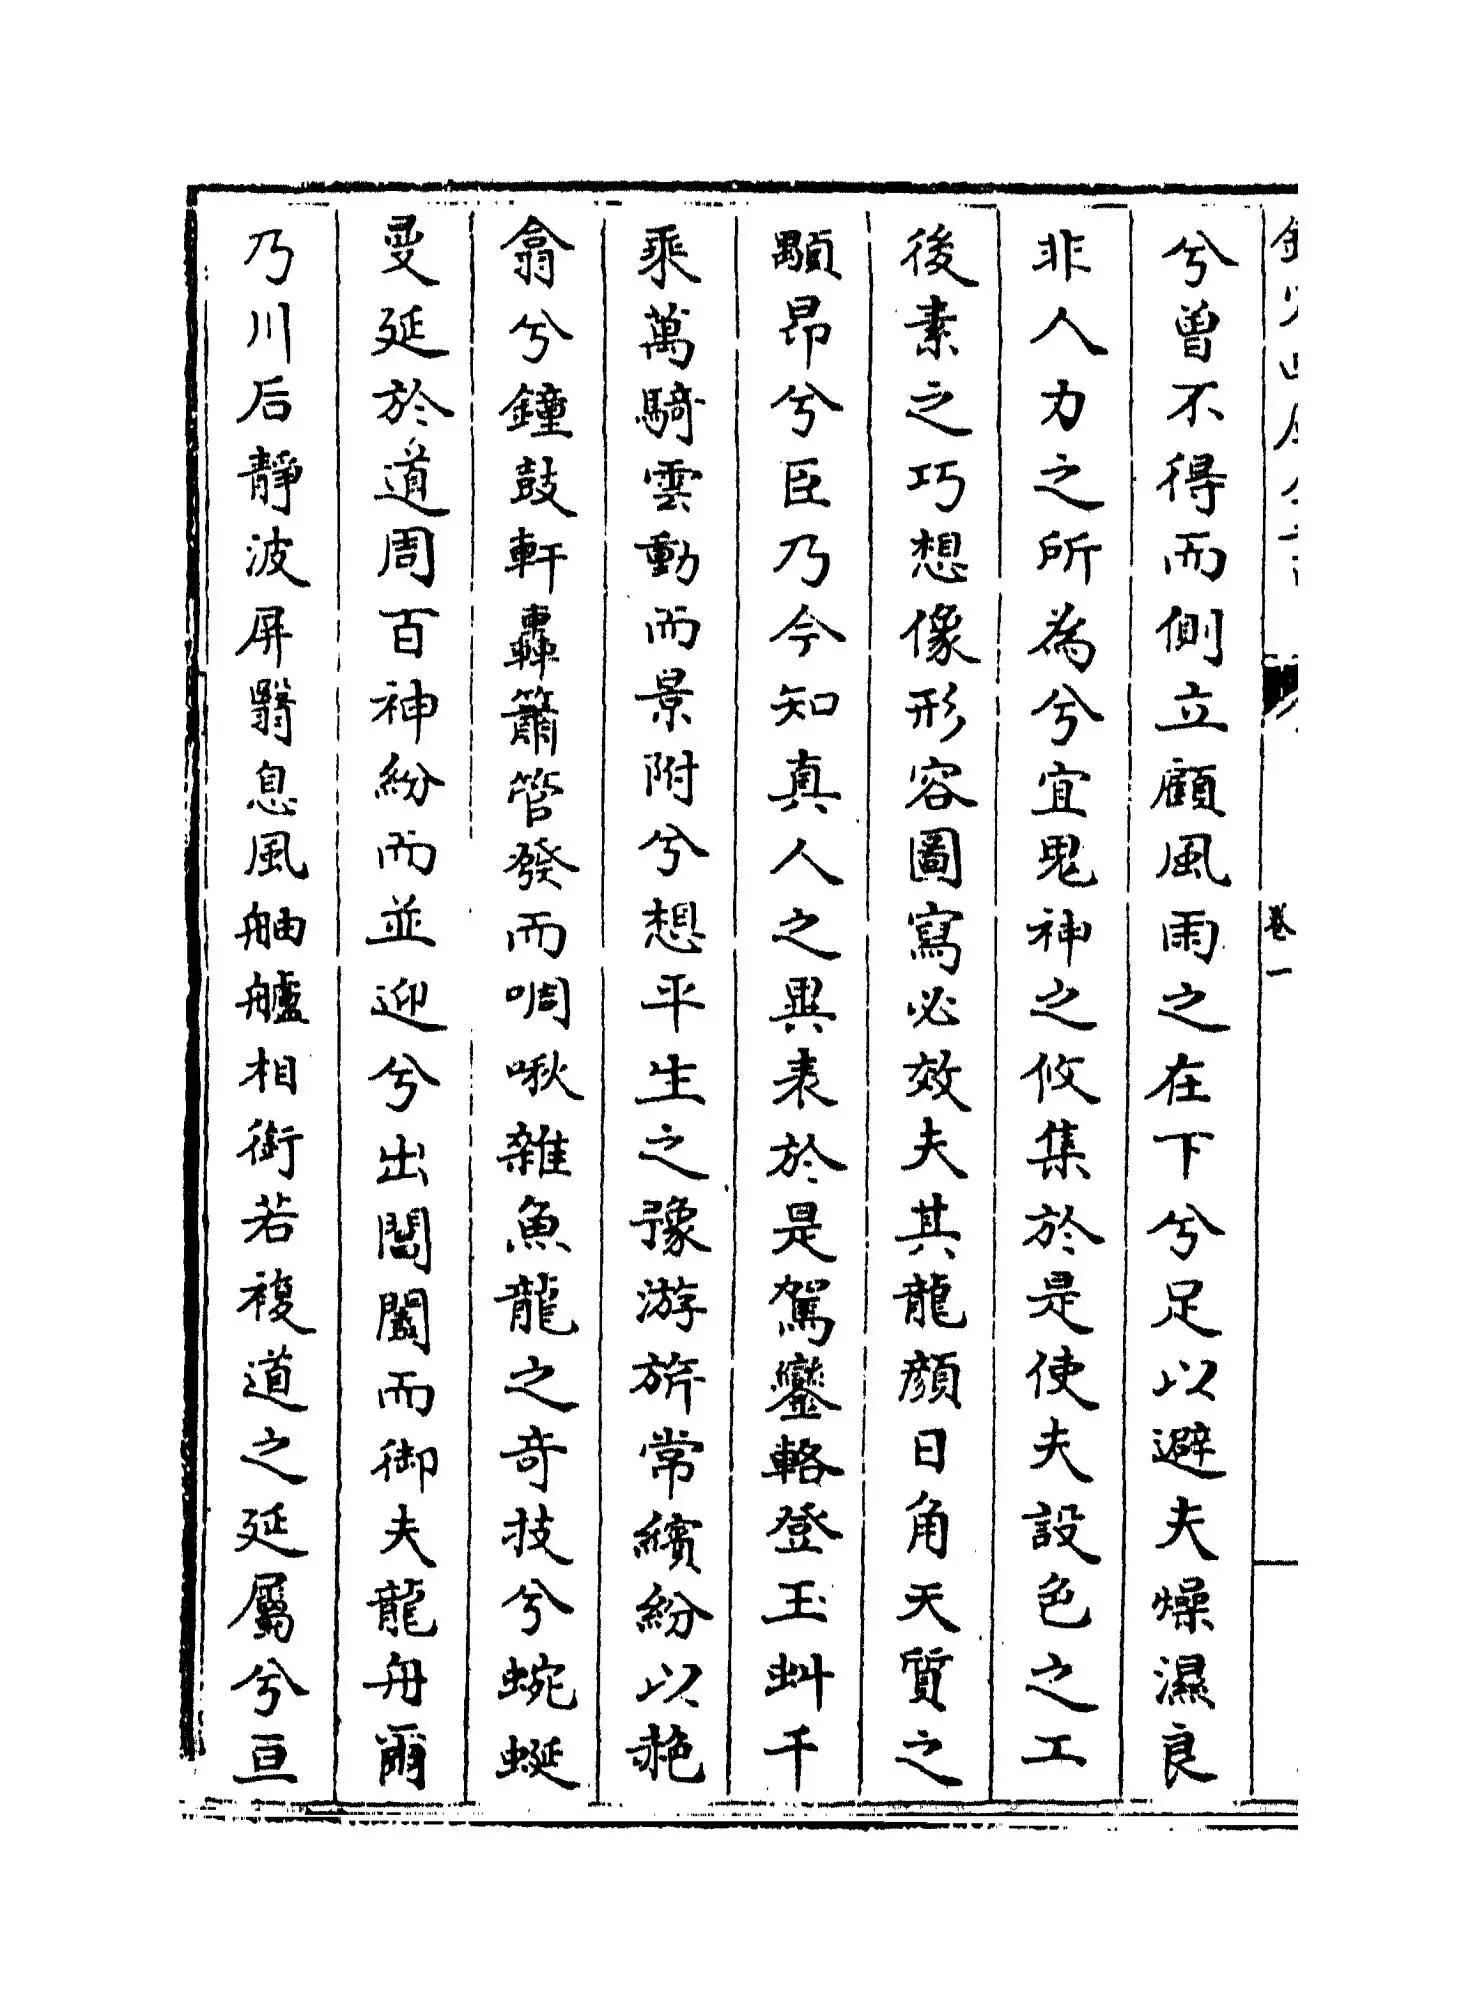 欽定四庫全書
卷一
兮曾不得而側立顧風雨之在下兮足以避夫燥濕良
非人力之所為兮宜鬼神之攸集於是使夫設色之工
後素之巧想像形容圖寫必效夫其龍顏日角天質之
顒昂兮臣乃今知真人之異表於是駕鑾輅登玉虯千
乘萬騎雲動而景附兮想平生之豫游旂常繽紛以赩
翕兮鐘鼓軒轟簫管發而啁啾雜魚龍之奇技兮蜿蜒
曼延於道周百神紛而並迎兮出閶闔而御夫龍舟爾
乃川后靜波屏翳息風舳艫相銜若複道之延屬兮亘